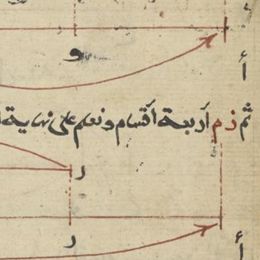 أ
و
ثم زم أربعة أقسام ونعلم على نهاية
ر
ر
أ